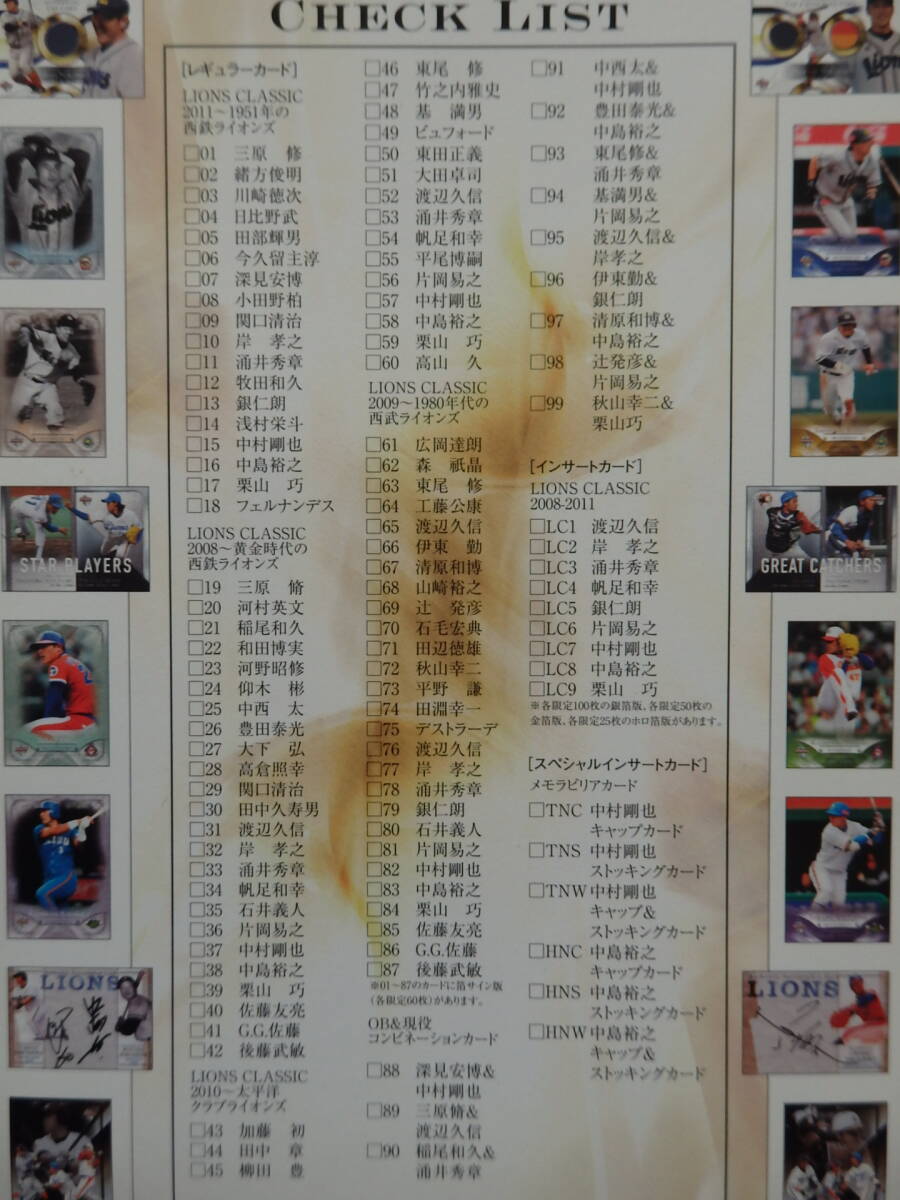 CHECK LIST
[レギュラーカード]
LIONS CLASSIC
2011〜1951年の
西鉄ライオンズ
□01 三原　修
□02 緒方俊明
□03 川崎徳次
□04 日比野武
□05 田部輝男
□06 今久留主淳
□07 深見安博
□08 小田野柏
□09 関口清治
□10 岸　孝之
□11 涌井秀章
□12 牧田和久
□13 銀仁朗
□14 浅村栄斗
□15 中村剛也
□16 中島裕之
□17 栗山　巧
□18 フェルナンデス
LIONS CLASSIC
2008〜黄金時代の
西鉄ライオンズ
□19 三原　脩
□20 河村英文
□21 稲尾和久
□22 和田博実
□23 河野昭修
□24 仰木　彬
□25 中西　太
□26 豊田泰光
□27 大下　弘
□28 高倉照幸
□29 関口清治
□30 田中久寿男
□31 渡辺久信
□32 岸　孝之
□33 涌井秀章
□34 帆足和幸
□35 石井義人
□36 片岡易之
□37 中村剛也
□38 中島裕之
□39 栗山　巧
□40 佐藤友亮
□41 G.G.佐藤
□42 後藤武敏
LIONS CLASSIC
2010〜太平洋
クラブライオンズ
□43 加藤　初
□44 田中　章
□45 柳田　豊
□46 東尾　修
□47 竹之内雅史
□48 基　満男
□49 ビュフォード
□50 東田正義
□51 大田卓司
□52 渡辺久信
□53 涌井秀章
□54 帆足和幸
□55 平尾博嗣
□56 片岡易之
□57 中村剛也
□58 中島裕之
□59 栗山　巧
□60 高山　久
LIONS CLASSIC
2009〜1980年代の
西武ライオンズ
□61 広岡達朗
□62 森　祇晶
□63 東尾　修
□64 工藤公康
□65 渡辺久信
□66 伊東　勤
□67 清原和博
□68 山崎裕之
□69 辻　発彦
□70 石毛宏典
□71 田辺徳雄
□72 秋山幸二
□73 平野　謙
□74 田淵幸一
□75 デストラーデ
□76 渡辺久信
□77 岸　孝之
□78 涌井秀章
□79 銀仁朗
□80 石井義人
□81 片岡易之
□82 中村剛也
□83 中島裕之
□84 栗山　巧
□85 佐藤友亮
□86 G.G.佐藤
□87 後藤武敏
※01〜87のカードに箔サイン版
(各限定60枚)があります。
OB&現役
コンビネーションカード
□88 深見安博&
中村剛也
□89 三原脩&
渡辺久信
□90 稲尾和久&
涌井秀章
□91 中西太&
中村剛也
□92 豊田泰光&
中島裕之
□93 東尾修&
涌井秀章
□94 基満男&
片岡易之
□95 渡辺久信&
岸孝之
□96 伊東勤&
銀仁朗
□97 清原和博&
中島裕之
□98 辻発彦&
片岡易之
□99 秋山幸二&
栗山巧
[インサートカード]
LIONS CLASSIC
2008-2011
□LC1 渡辺久信
□LC2 岸　孝之
□LC3 涌井秀章
□LC4 帆足和幸
□LC5 銀仁朗
□LC6 片岡易之
□LC7 中村剛也
□LC8 中島裕之
□LC9 栗山　巧
※各限定100枚の銀箔版、各限定50枚の
金箔版、各限定25枚のホロ箔版があります。
[スペシャルインサートカード]
メモラビリアカード
□TNC 中村剛也
キャップカード
□TNS 中村剛也
ストッキングカード
□TNW 中村剛也
キャップ&
ストッキングカード
□HNC 中島裕之
キャップカード
□HNS 中島裕之
ストッキングカード
□HNW 中島裕之
キャップ&
ストッキングカード
STAR PLAYERS
LIONS
GREAT CATCHERS
LIONS